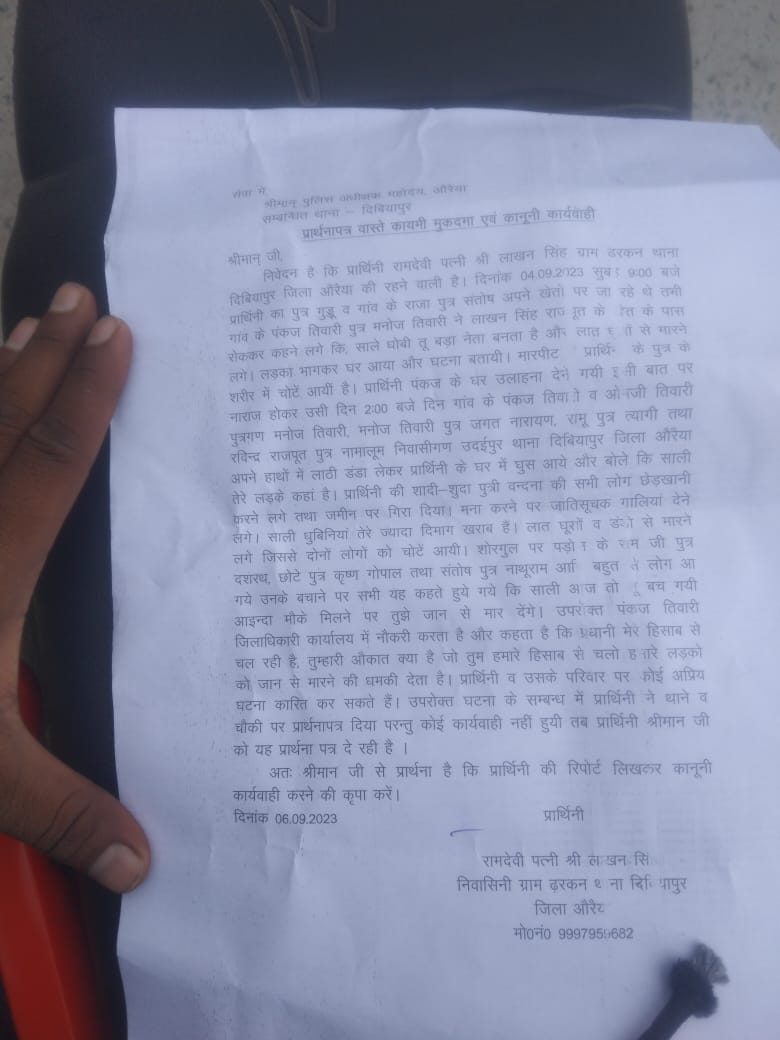 सेवा में,
श्रीमान् पुलिस अधीक्षक महोदय, औरैया
सम्बन्धित थाना – दिबियापुर
प्रार्थनापत्र वास्ते कायमी मुकदमा एवं कानूनी कार्यवाही
श्रीमान् जी,
निवेदन है कि प्रार्थिनी रामदेवी पत्नी श्री लाखन सिंह ग्राम ढरकन थाना
दिबियापुर जिला औरैया की रहने वाली है। दिनांक 04.09.2023 9:00 बजे
प्रार्थिनी का पुत्र गुड्डू व गांव के राजा पुत्र संतोष अपने खेतों पर जा रहे थे तभी
गांव के पंकज तिवारी पुत्र मनोज तिवारी ने लाखन सिंह के के पास
रोककर कहने लगे कि, साले धोबी तू बड़ा नेता बनता है और लात से मारने
लगे। लड़का भागकर घर आया और घटना बतायी। मारपीट के पुत्र के
शरीर में चोटें आयीं है। प्रार्थिनी पंकज के घर उलाहना देने गयी बात पर
नाराज होकर उसी दिन 2:00 बजे दिन गांव के पंकज व तिवारी
पुत्रगण मनोज तिवारी, मनोज तिवारी पुत्र जगत नारायण, रामू पुत्र त्यागी तथा
रविन्द्र राजपूत पुत्र नामालूम निवासीगण उदईपुर थाना दिबियापुर जिला औरैया
अपने हाथों में लाठी डंडा लेकर प्रार्थिनी के घर में घुस आये और बोले कि साली
तेरे लड़के कहां है। प्रार्थिनी की शादी–शुदा पुत्री वन्दना की सभी लोग छेड़खानी
करने लगे तथा जमीन पर गिरा दिया। मना करने पर जातिसूचक गालियां देने
लगे। साली धुबिनियां तेरे ज्यादा दिमाग खराब हैं। लात घूसों व से मारने
लगे जिससे दोनों लोगों को चोटें आयी। शोरगुल पर के जी पुत्र
दशरथ, छोटे पुत्र कृष्ण गोपाल तथा संतोष पुत्र नाथूराम बहुत लोग आ
गये उनके बचाने पर सभी यह कहते हुये गये कि साली आज तो बच गयी
आइन्दा मौके मिलने पर तुझे जान से मार देंगे। उपरोक्त पंकज तिवारी
जिलाधिकारी कार्यालय में नौकरी करता है और कहता है कि प्रधानी मेर हिसाब से
चल रही है, तुम्हारी औकात क्या है जो तुम हमारे हिसाब से चलो लड़को
को जान से मारने की धमकी देता है। प्रार्थिनी व उसके परिवार पर कोई अप्रिय
घटना कारित कर सकते हैं। उपरोक्त घटना के सम्बन्ध में प्रार्थिनी ने थाने व
चौकी पर प्रार्थनापत्र दिया परन्तु कोई कार्यवाही नहीं हुयी तब प्रार्थिनी श्रीमान जी
को यह प्रार्थना पत्र दे रही है ।
अतः श्रीमान जी से प्रार्थना है कि प्रार्थिनी की रिपोर्ट लिखकर कानूनी
कार्यवाही करने की कृपा करें।
दिनांक 06.09.2023 प्रार्थिनी
रामदेवी पत्नी श्री
निवासिनी ग्राम ढ़रकन
जिला
मो0नं0